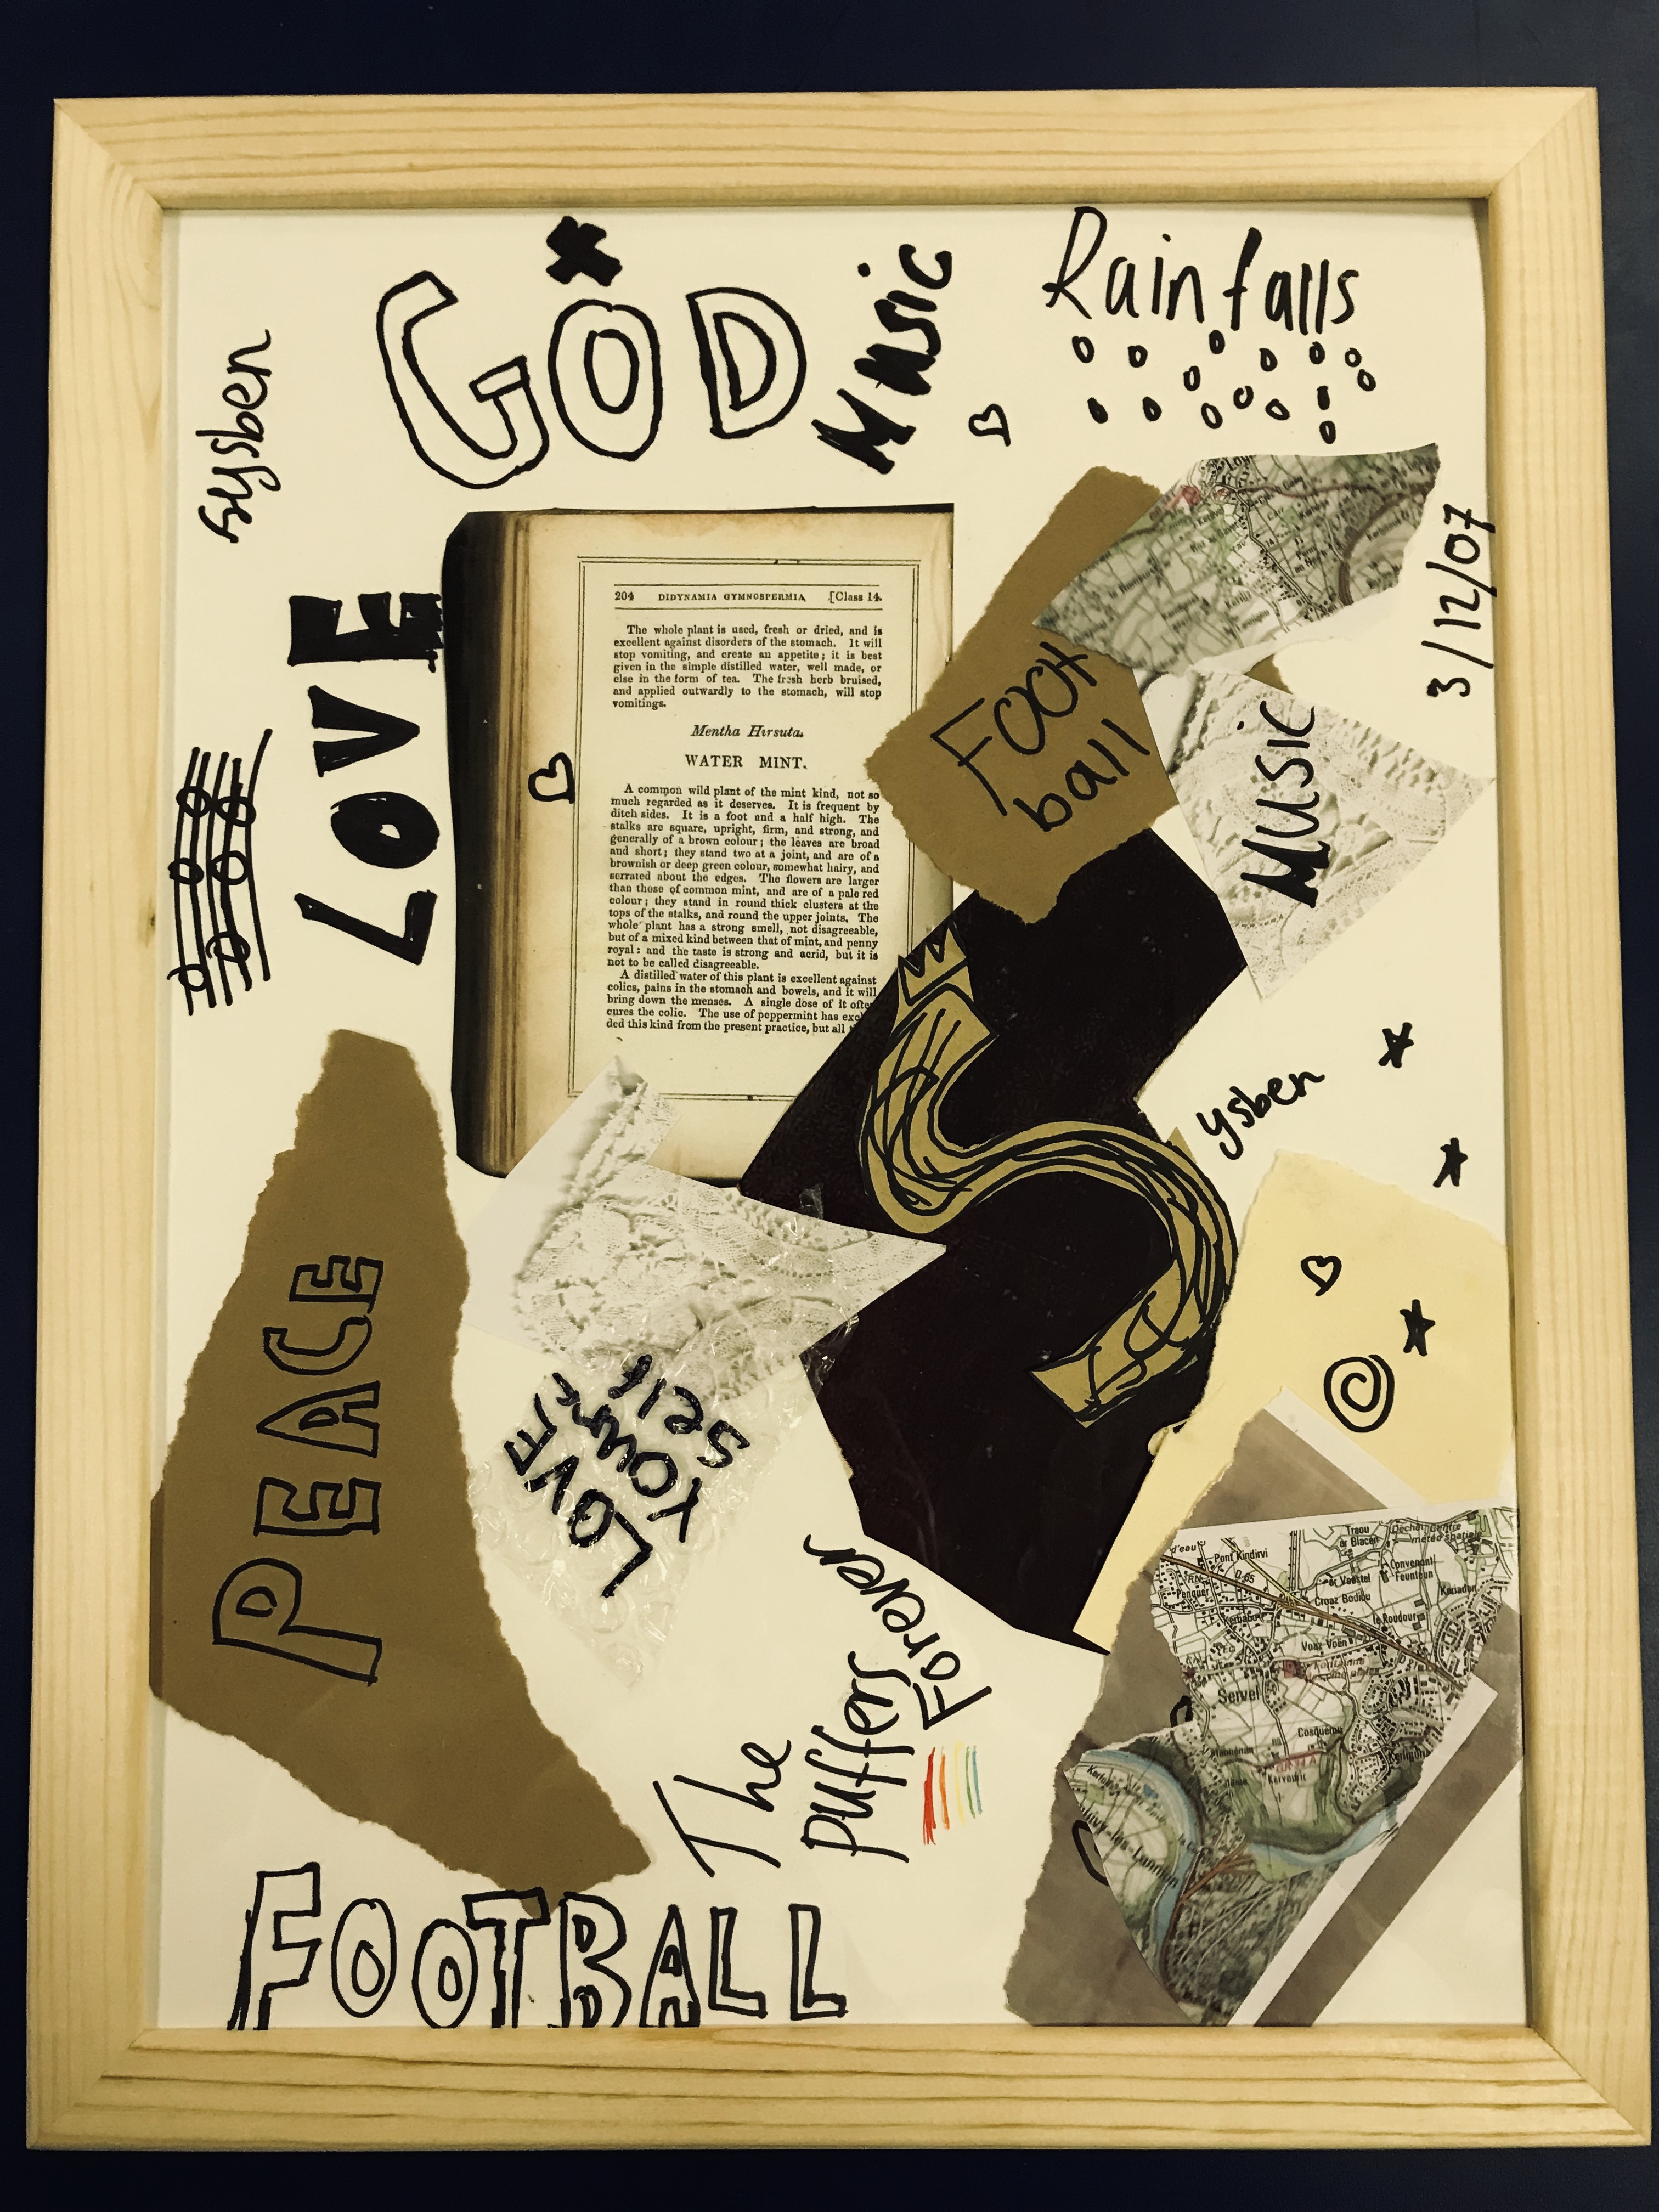 GOD
Music
Rainfalls
sysben
LOVE
3/12/07
204 DIDYNAMIA GYMNOSPERMIA. [Class 14.
The whole plant is used, fresh or dried, and is
excellent against disorders of the stomach. It will
stop vomiting, and create an appetite; it is best
given in the simple distilled water, well made, or
else in the form of tea. The fresh herb bruised,
and applied outwardly to the stomach, will stop
vomitings.
Mentha Hirsuta.
WATER MINT.
A common wild plant of the mint kind, not so
much regarded as it deserves. It is frequent by
ditch sides. It is a foot and a half high. The
stalks are square, upright, firm, and strong, and
generally of a brown colour; the leaves are broad
and short; they stand two at a joint, and are of a
brownish or deep green colour, somewhat hairy, and
serrated about the edges. The flowers are larger
than those of common mint, and are of a pale red
colour; they stand in round thick clusters at the
tops of the stalks, and round the upper joints. The
whole plant has a strong smell, not disagreeable,
but of a mixed kind between that of mint, and penny
royal: and the taste is strong and acrid, but it is
not to be called disagreeable.
A distilled water of this plant is excellent against
colics, pains in the stomach and bowels, and it will
bring down the menses. A single dose of it often
cures the colic. The use of peppermint has exclu
ded this kind from the present practice, but all
Foot
ball
Music
ysben
PEACE
LOVE
YOUR
self
The
puffers
Forever
FOOTBALL
d'eau
Pont Kindirvi
Traou
ar Blacen
Convenant
Feunteun
Penquer
D.65
ar Voastel
Croaz Bodiou
Keriadon
le Roudour
Vouz Voën
Servel
Cosquerou
Kervouric